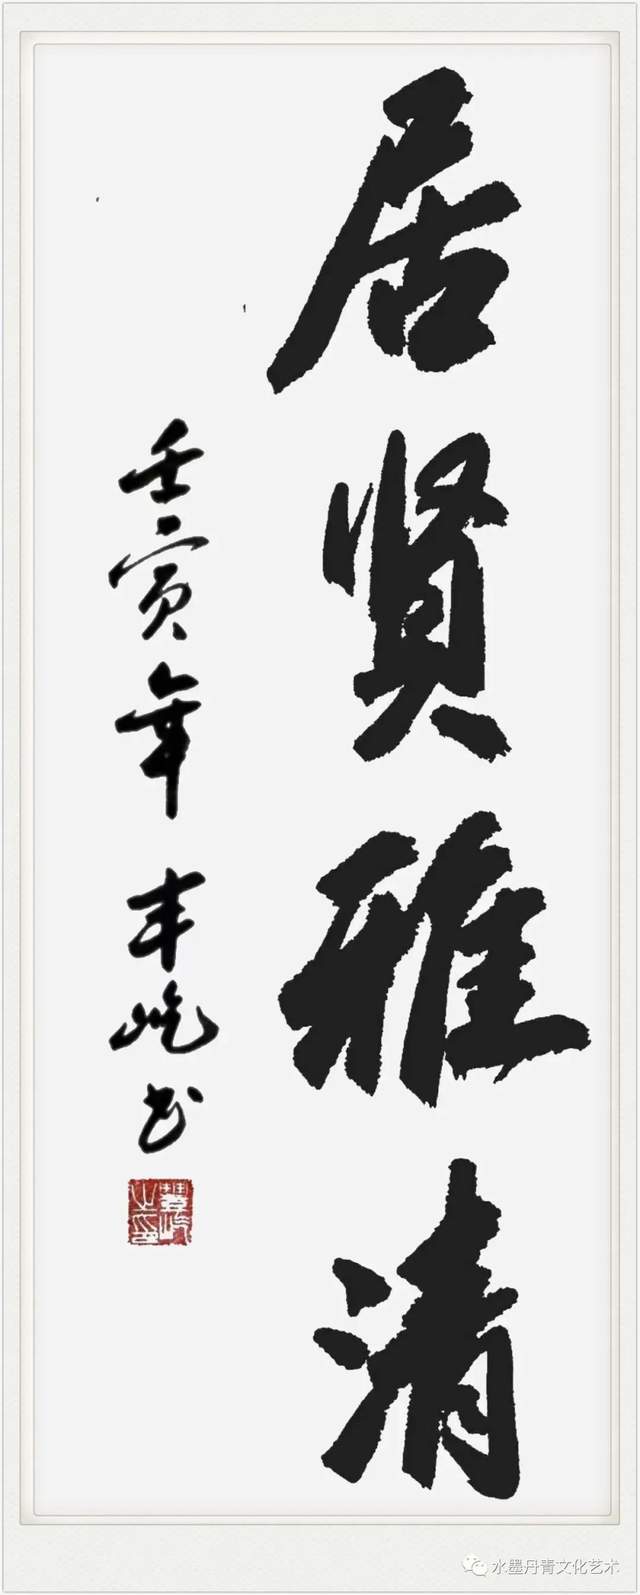 居贤雅清
壬寅年 丰屹书
水墨丹青文化艺术